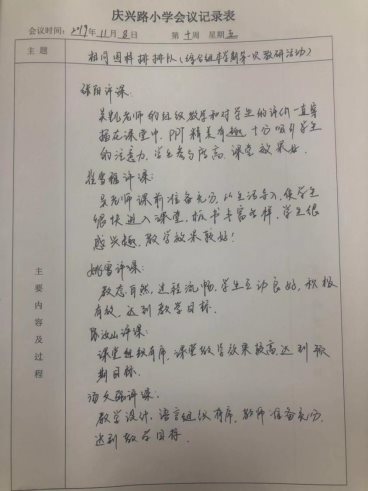 庆兴路小学会议记录表
会议时间: 2019年11月8日 第十周 星期五
主题 相同图样排排队(综合组本学期第一次教研活动)
主要内容及过程
张阳评课:
吴凯老师的组织教学和对学生的评价一直穿
插在课堂中, PPT精美有趣, 十分吸引学生
的注意力, 学生参与度高, 课堂效果好.
崔雪雅评课:
吴老师课前准备充分, 以生活导入, 使学生
很快进入课堂, 板书丰富多样, 学生很
感兴趣, 教学效果较好!
姚雪评课:
教态自然, 过程流畅, 学生互动良好, 积极
有效, 达到教学目标.
评课:
课堂组织有序, 课堂教学效果较高, 达到预
期目标.
汤文强评课:
教学设计、语言组织有序, 教师准备充分,
达到教学目标.